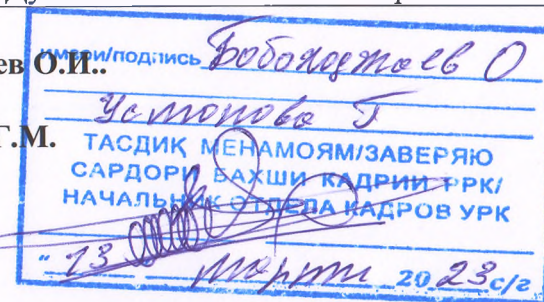 ев О.И..
Г.М.
имзои/подпись Бобоходжаев О
Усмонова Г
ТАСДИҚ МЕНАМОЯМ/ЗАВЕРЯЮ
САРДОРИ БАХШИ КАДРИИ РРК/
НАЧАЛЬНИК ОТДЕЛА КАДРОВ УРК
"13 марти 2023 с/г